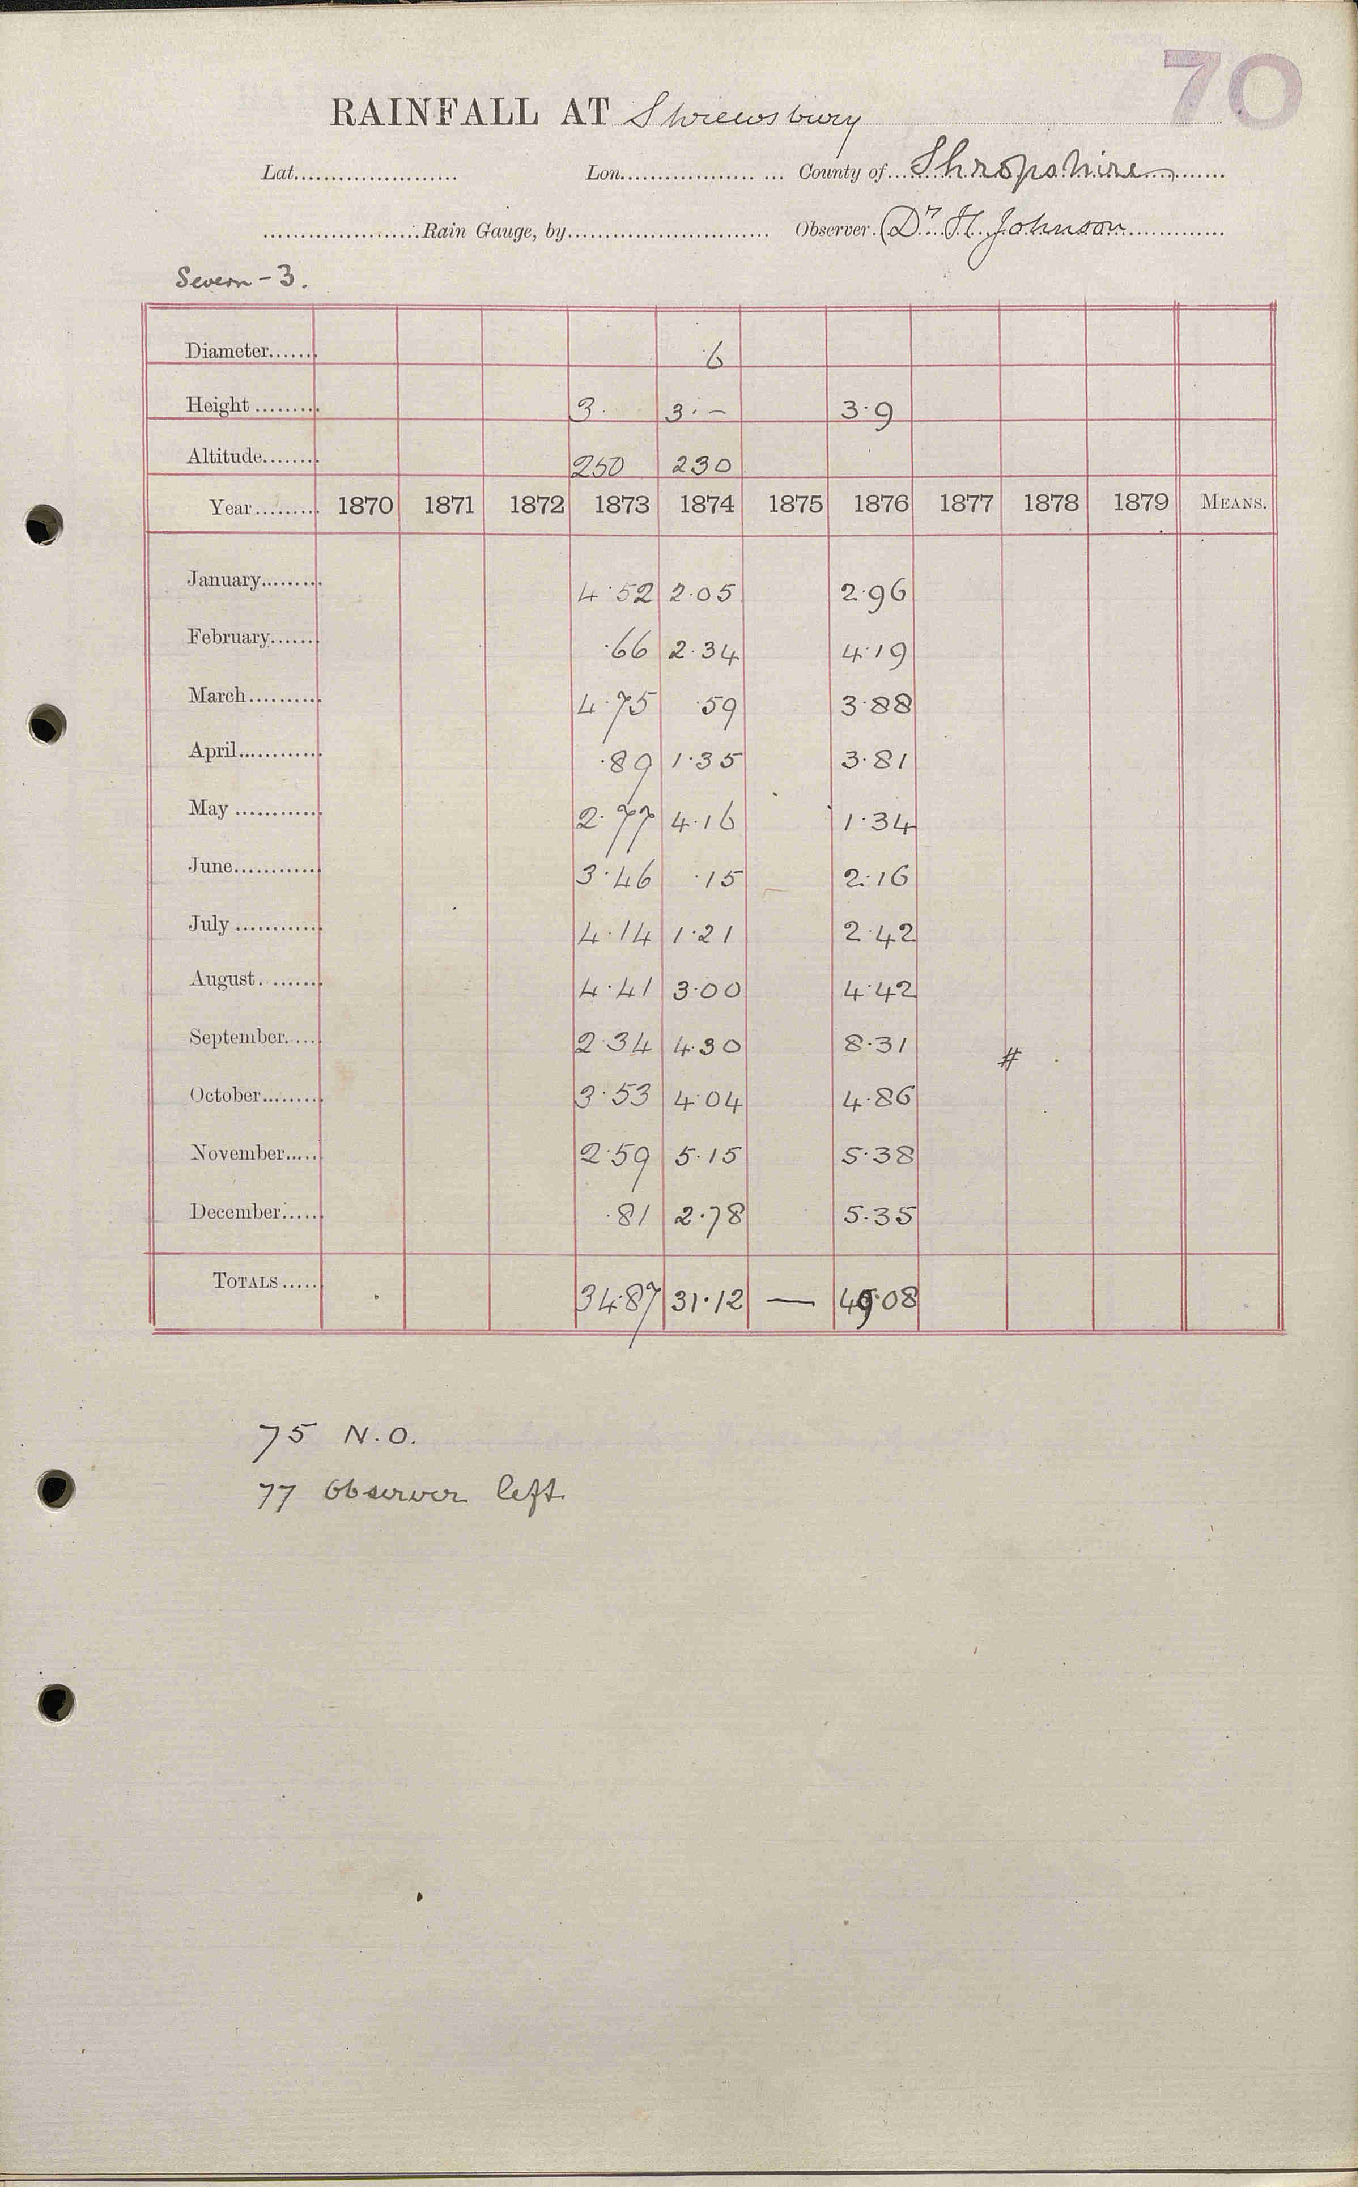 70
RAINFALL AT Shrewsbury
Lat...................... Lon.................. ... County of...Shropshire.......
......................Rain Gauge, by........................... Observer.(Dr. H. Johnson.............
Severn - 3.
Diameter....... 6
Height ......... 3. 3. - 3.9
Altitude........ 250 230
Year......... 1870 1871 1872 1873 1874 1875 1876 1877 1878 1879 MEANS.
January......... 4.52 2.05 2.96
February....... .66 2.34 4.19
March.......... 4.75 .59 3.88
April............ .89 1.35 3.81
May ............ 2.77 4.16 1.34
June............ 3.46 .15 2.16
July ............ 4.14 1.21 2.42
August. ....... 4.41 3.00 4.42
September..... 2.34 4.30 8.31 #
October......... 3.53 4.04 4.86
November...... 2.59 5.15 5.38
December...... .81 2.78 5.35
TOTALS...... 34.87 31.12 — 49.08
75 N.O.
77 Observer left